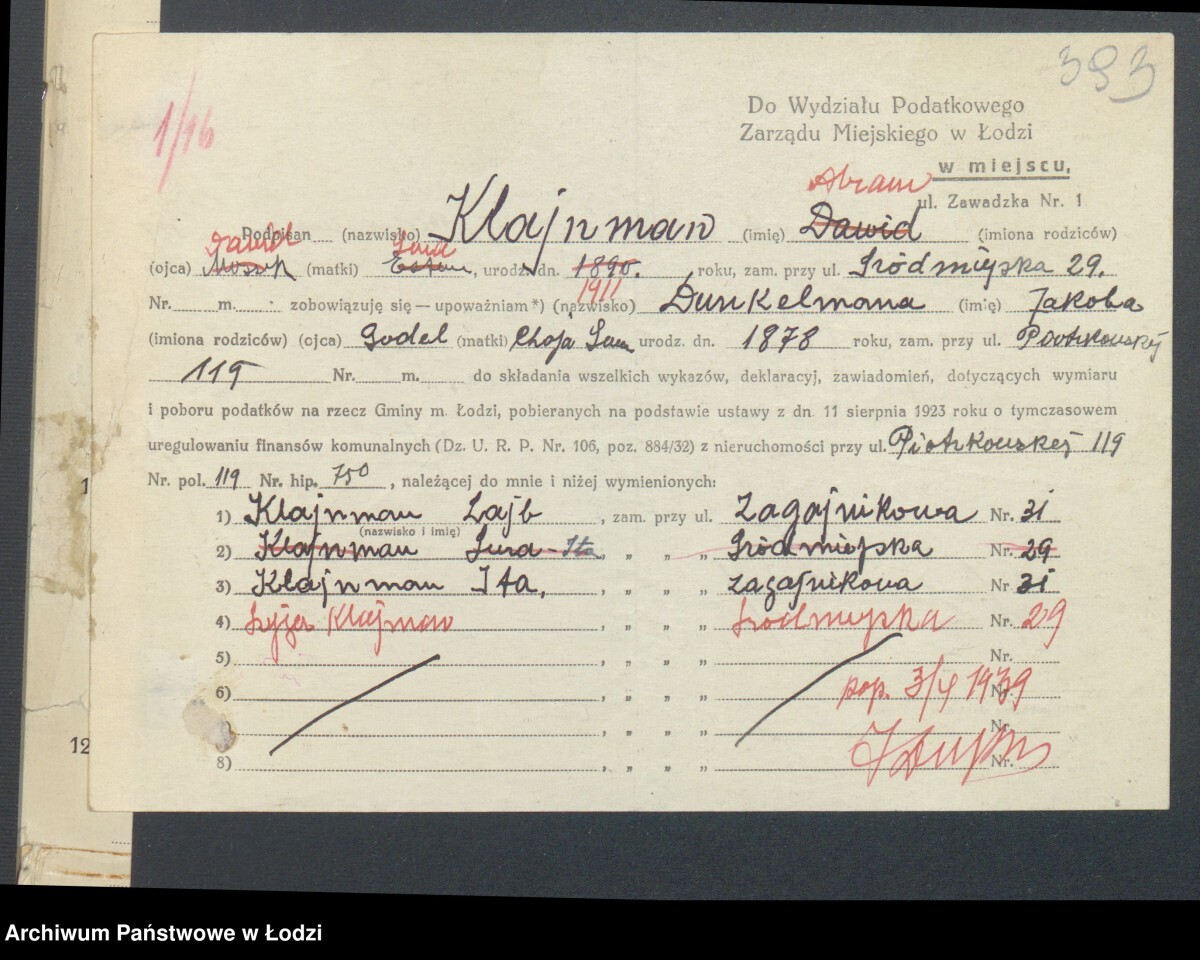 393
1/16
Do Wydziału Podatkowego
Zarządu Miejskiego w Łodzi
w miejscu,
ul. Zawadzka Nr. 1
Abram
Podpisan (nazwisko) Klajnman (imię) Dawid (imiona rodziców)
Dawid
(ojca) (matki) , urodz. dn. 1890. roku, zam. przy ul. Śródmiejska 29.
1911
Nr. m. zobowiązuję się — upoważniam *) (nazwisko) Dunkelmana (imię) Jakoba
(imiona rodziców) (ojca) Godel (matki) Chaja urodz. dn. 1878 roku, zam. przy ul. Piotrkowskiej
119 Nr. m. do składania wszelkich wykazów, deklaracyj, zawiadomień, dotyczących wymiaru
i poboru podatków na rzecz Gminy m. Łodzi, pobieranych na podstawie ustawy z dn. 11 sierpnia 1923 roku o tymczasowem
uregulowaniu finansów komunalnych (Dz. U. R. P. Nr. 106, poz. 884/32) z nieruchomości przy ul. Piotrkowskej 119
Nr. pol. 119 Nr. hip. 750 , należącej do mnie i niżej wymienionych:
1) Klajnman Lajb , zam. przy ul. Zagajnikowa Nr. 31
(nazwisko i imię)
2) Klajnman Sura-Ita , „ „ „ Śródmiejska Nr. 29
3) Klajnman Ita, , „ „ „ Zagajnikowa Nr. 31
4) Klajman , „ „ „ Śródmiejska Nr. 29
5) , „ „ „ Nr.
6) , „ „ „ pop. 3/X 1939 Nr.
) , „ „ „ Nr.
8) , „ „ „ Nr.
12
Archiwum Państwowe w Łodzi